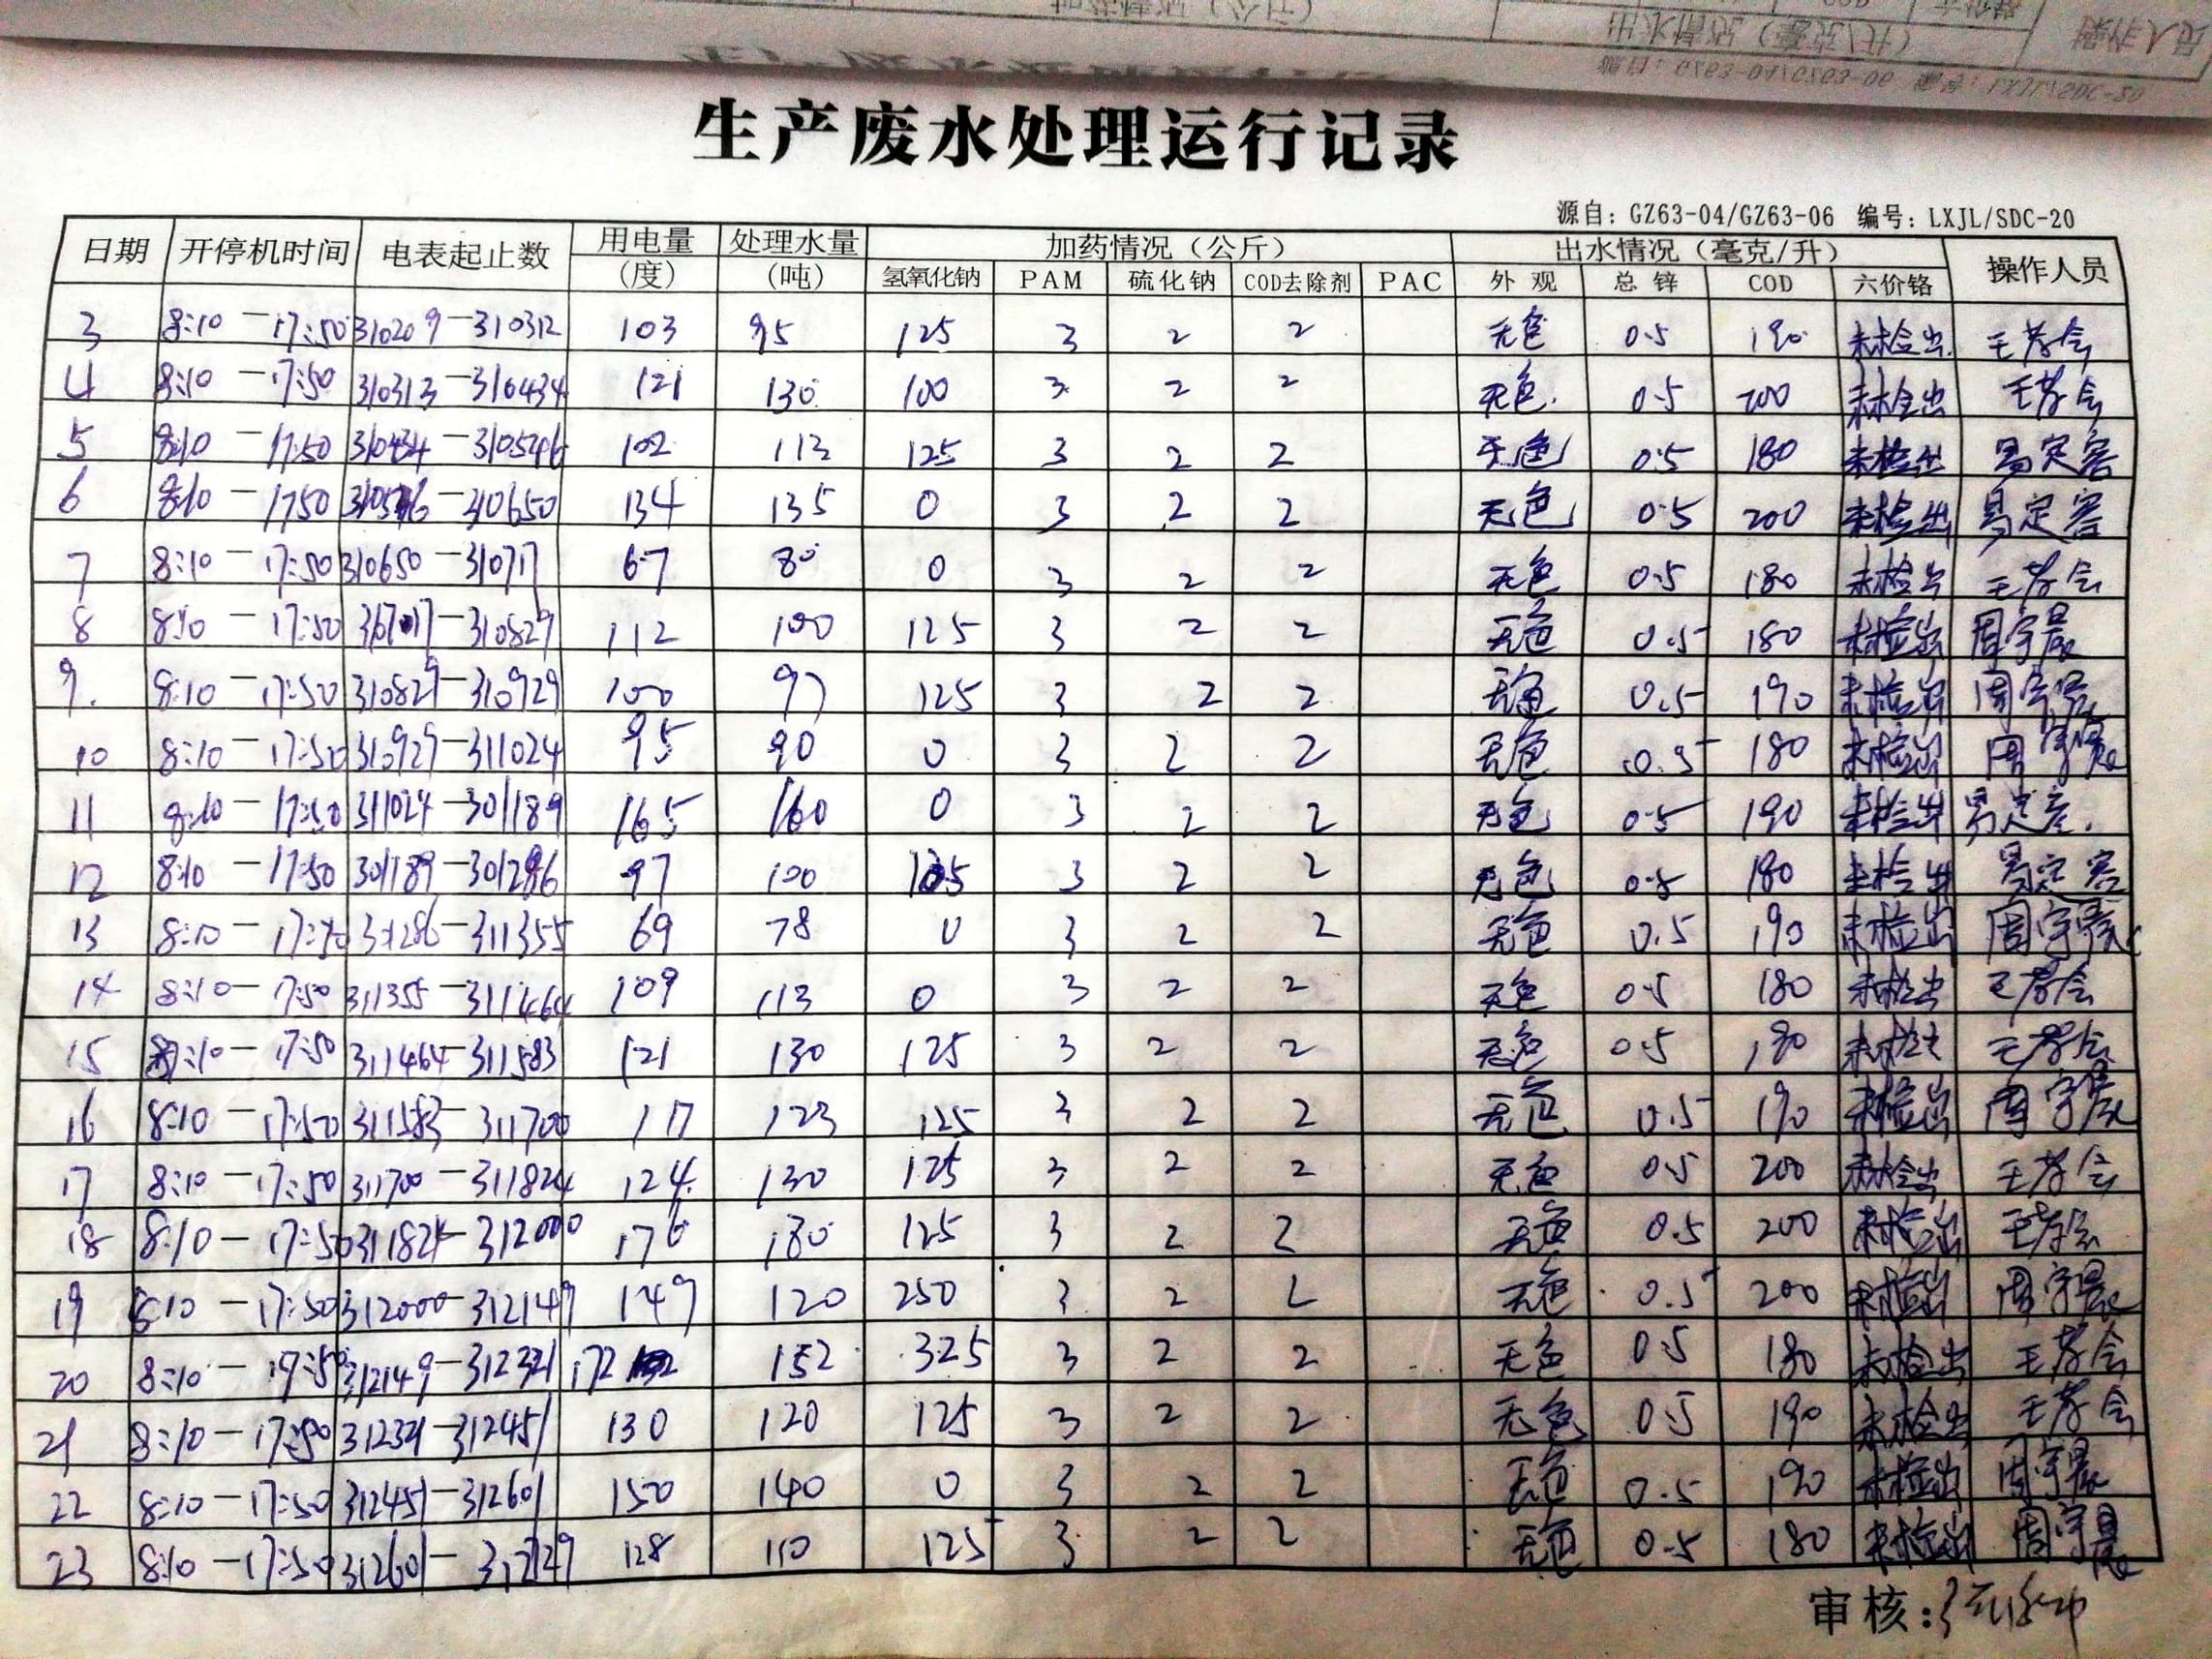 生产废水处理运行记录
源自：GZ63-04/GZ63-06 编号：LXJL/SDC-20
日期 开停机时间 电表起止数 用电量（度） 处理水量（吨） 加药情况（公斤） 出水情况（毫克/升） 操作人员
氢氧化钠 PAM 硫化钠 COD去除剂 PAC 外观 总锌 COD 六价铬
3 8:10-17:50 310209-310312 103 95 125 3 2 2 无色 0.5 190 未检出
4 8:10-17:50 310313-310434 121 130 100 3 2 2 无色 0.5 200 未检出
5 8:10-17:50 310434-310546 102 113 125 3 2 2 无色 0.5 180 未检出
6 8:10-1750 -310650 134 135 0 3 2 2 无色 0.5 200 未检出
7 8:10-17:50 310650-310717 67 80 0 3 2 2 无色 0.5 180 未检出
8 8:10-17:50 -310829 112 100 125 3 2 2 无色 0.5 180 未检出 周宇晨
9. 8:10-17:50 310829-310929 100 97 125 3 2 2 无色 0.5 190 未检出 周宇晨
10 8:10-17:50 310929-311024 95 90 0 3 2 2 无色 0.5 180 未检出 周宇晨
11 8:10-17:50 311024-301189 165 160 0 3 2 2 无色 0.5 190 未检出
12 8:10-17:50 301189-301286 97 100 3 2 2 无色 0.5 180 未检出
13 8:10- 31286-311355 69 78 0 3 2 2 无色 0.5 190 未检出 周宇晨
14 8:10-17:50 311355-311464 109 113 0 3 2 2 无色 0.5 180 未检出
15 8:10-17:50 311464-311583 121 130 125 3 2 2 无色 0.5 180 未检出
16 8:10-17:50 311583-311700 117 123 125 3 2 2 无色 0.5 190 未检出 周宇晨
17 8:10-17:50 311700-311824 124 130 125 3 2 2 无色 0.5 200 未检出
18 8:10-17:50 311824-312000 176 180 125 3 2 2 无色 0.5 200 未检出
19 8:10-17:50 312000-312149 149 120 250 3 2 2 无色 0.5 200 未检出 周宇晨
20 8:10-17:50 312149-312321 172 152 325 3 2 2 无色 0.5 180 未检出
21 8:10-17:50 312321-312451 130 120 125 3 2 2 无色 0.5 190 未检出
22 8:10-17:50 312451-312601 150 140 0 3 2 2 无色 0.5 190 未检出 周宇晨
23 8:10-17:50 312601-312729 128 110 125 3 2 2 无色 0.5 180 未检出 周宇晨
审核：